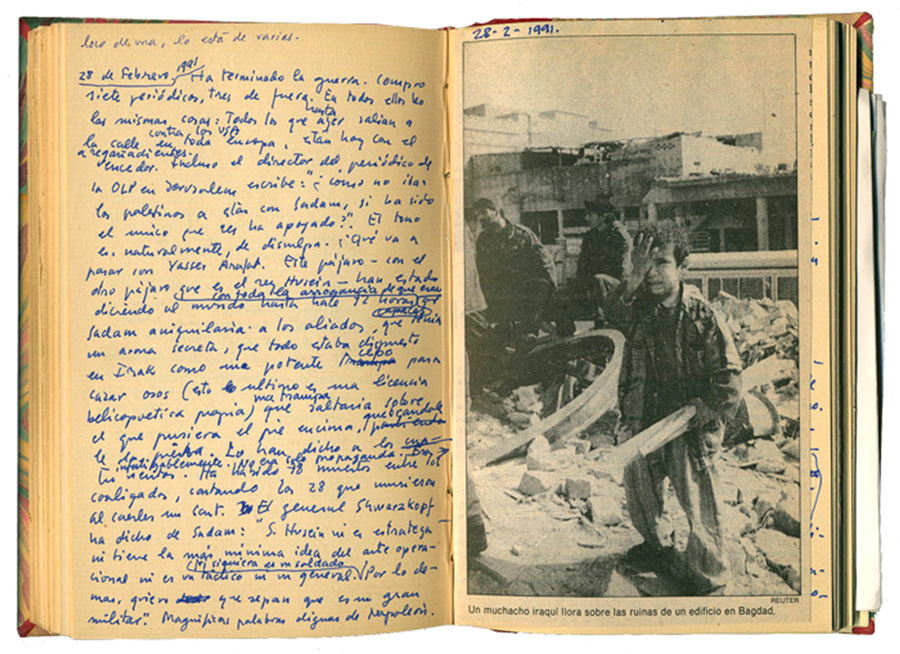 loco de una, lo está de varias.
28 de Febrero, 1991 Ha terminado la guerra. Compro
siete periódicos, tres de fuera. En todos ellos leo
las mismas cosas: Todos los que hasta ayer salían a
la calle contra los USA en toda Europa, están hoy con el
vencedor. a regañadientes. Incluso el director del periódico de
la OLP en Jerusalem escribe: "¿Cómo no iban
los palestinos a estar con Sadam, si ha sido
el único que les ha apoyado?". El tono
es, naturalmente, de disculpa. ¿Qué va a
pasar con Yasser Arafat. Este pájaro - con el
otro pájaro que es el rey Husein - han estado
con toda la arrogancia de que eran capaces
diciendo al mundo hasta hace 12 horas que
Sadam aniquilaría a los aliados, que tenía
un arma secreta, que todo estaba dispuesto
en Irak como una potente trampa cepo para
cazar osos (esto último es una licencia
belicopoética propia) una trampa que saltaría sobre
el que pusiera el pie encima, quebrándole
la pierna. Lo han dicho a los
infatigablemente. No era sólo propaganda.
Ha habido 78 muertos entre los
coaligados, contando los 28 que murieron
al caerles un Scud. El general Shwarzkopf
ha dicho de Sadam: "S. Husein ni es estratega
ni tiene la más mínima idea del arte opera-
cional ni es un táctico ni un general. Ni siquiera es un soldado. Por lo de-
más, quiero que sepan que es un gran
militar". Magníficas palabras dignas de Napoleón.
28-2-1991.
REUTER
Un muchacho iraquí llora sobre las ruinas de un edificio en Bagdad.